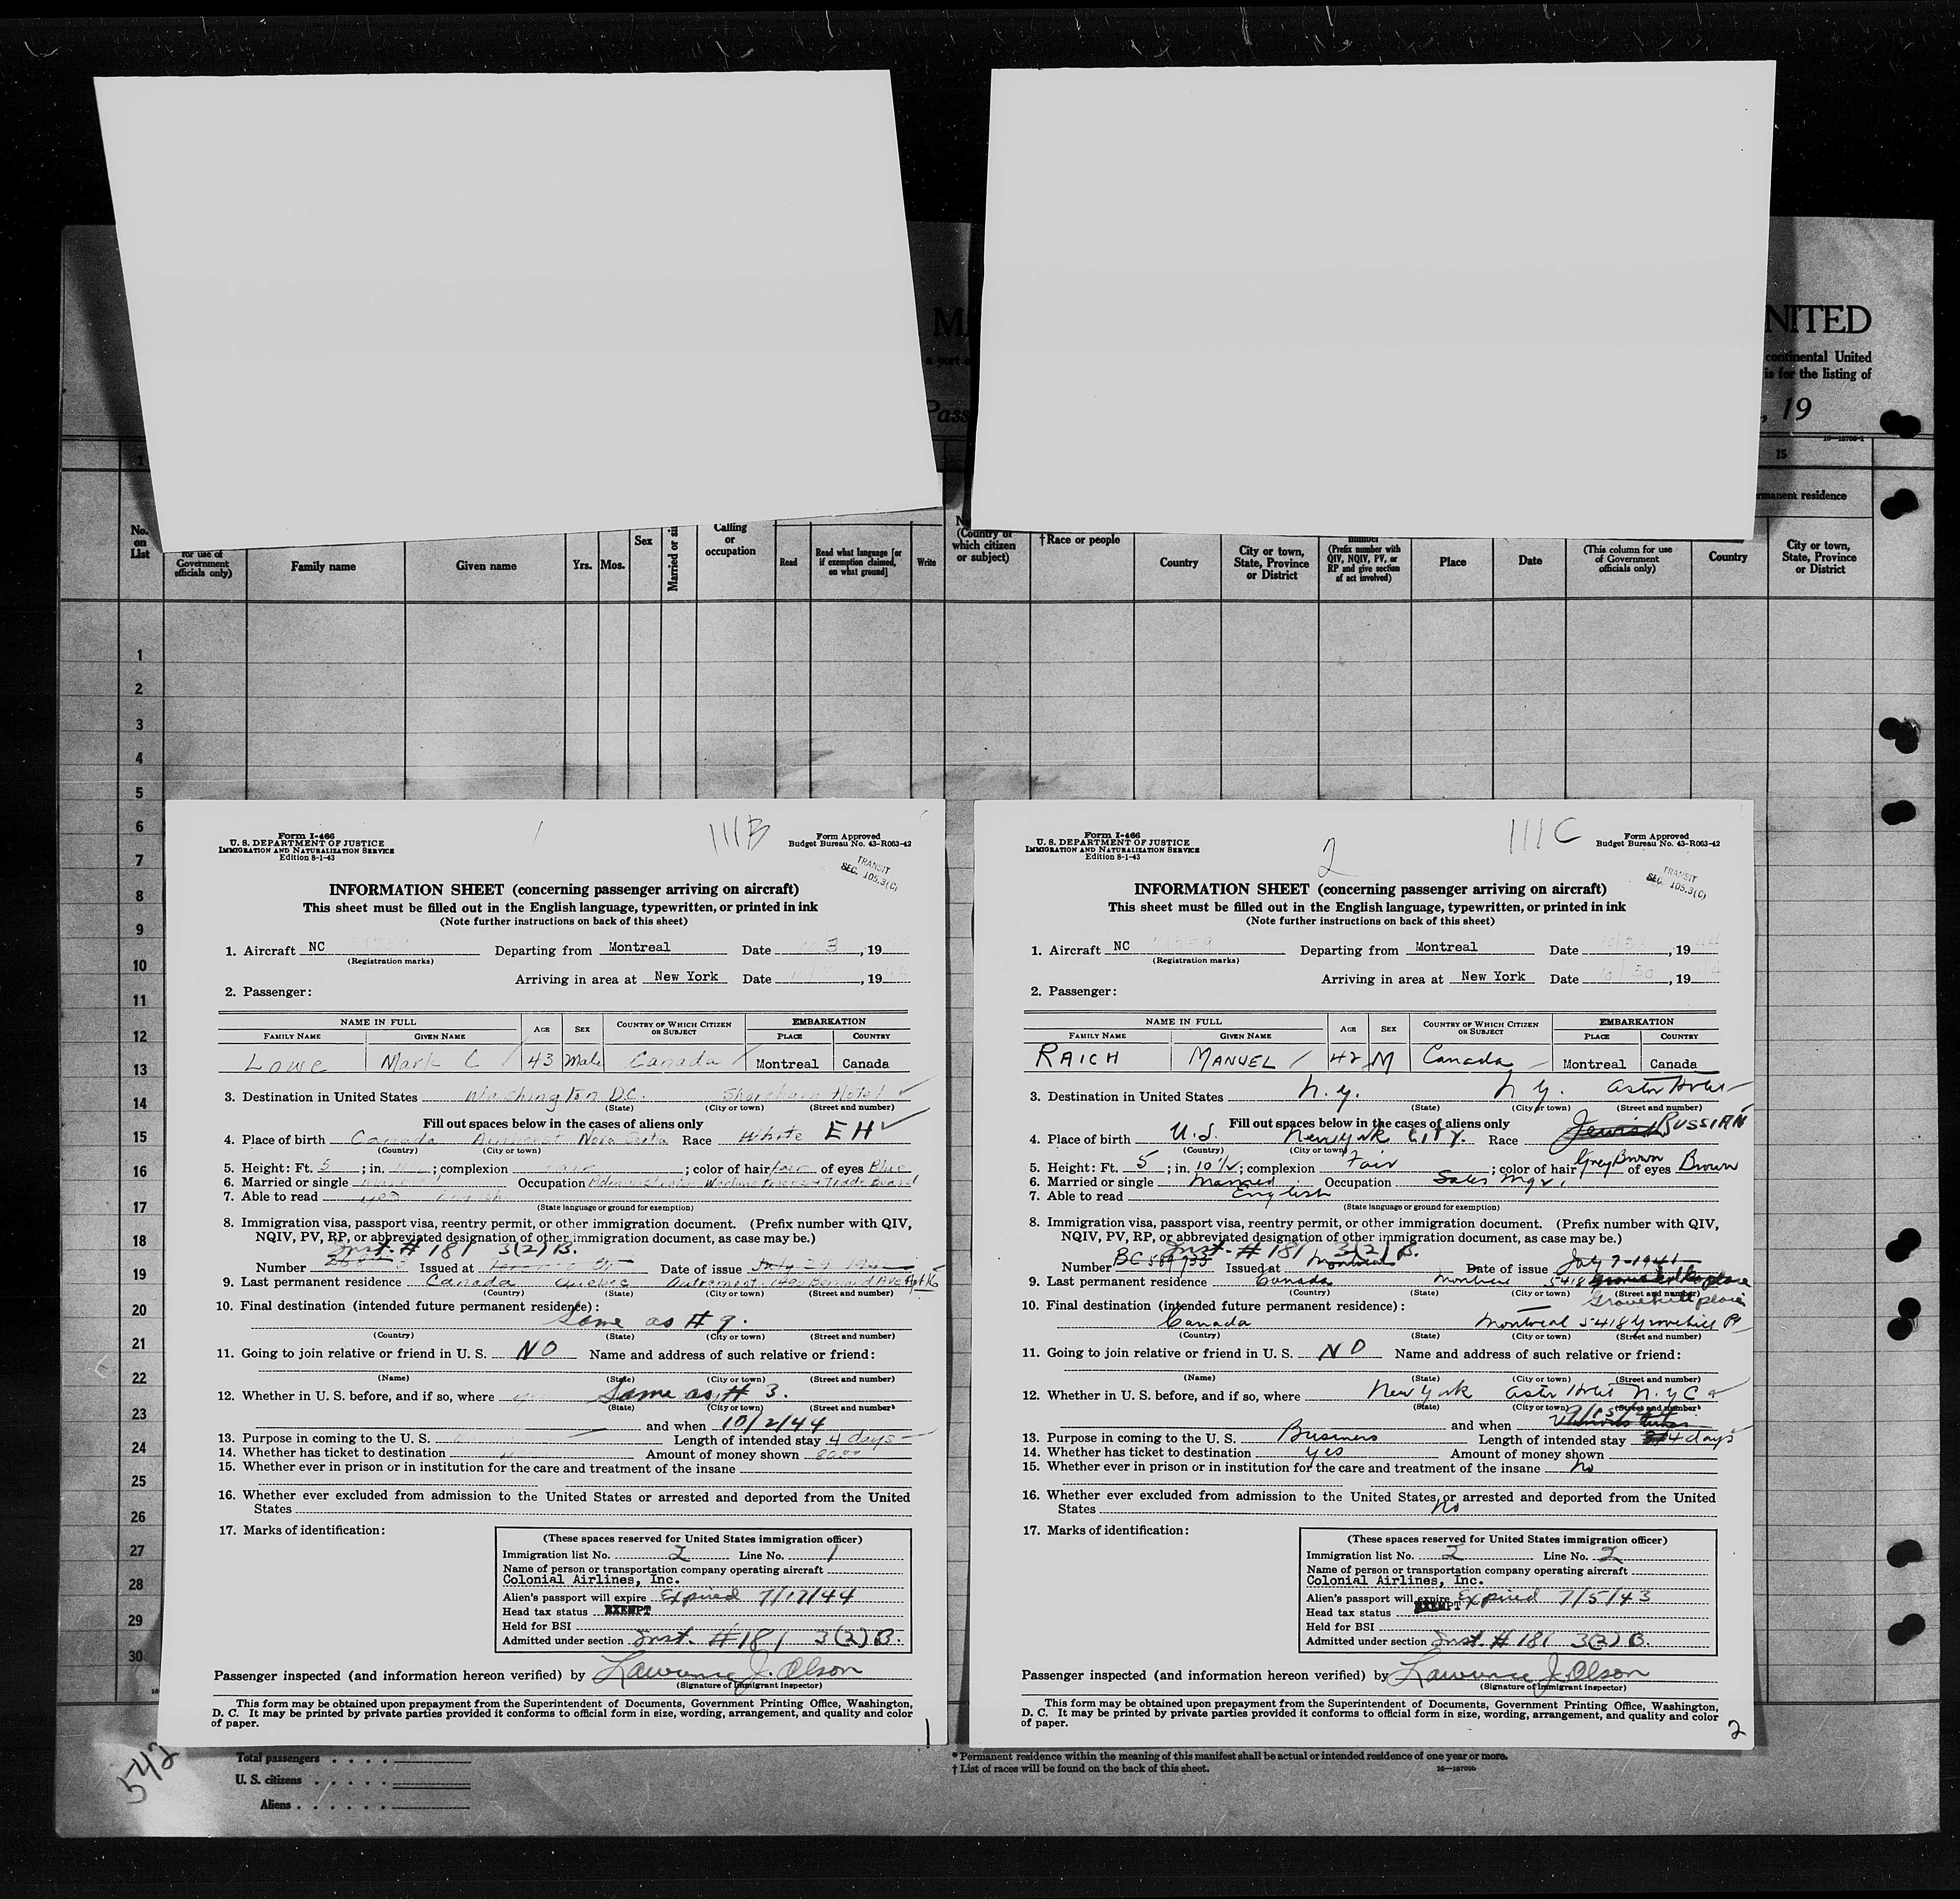 MA
NITED
a port o
continental United
is for the listing of
Pass
, 19
16—18709-1
1
15
rmanent residence
No.
on
List
for use of
Government
officials only)
Family name
Given name
Yrs.
Mos.
Sex
Married or si
Calling
or
occupation
Read
Read what language [or
if exemption claimed,
on what ground]
Write
(Country of
which citizen
or subject)
†Race or people
Country
City or town,
State, Province
or District
number
(Prefix number with
QIV, NQIV, PV, or
RP and give section
of act involved)
Place
Date
(This column for use
of Government
officials only)
Country
City or town,
State, Province
or District
1
2
3
4
5
6
7
8
9
10
11
12
13
14
15
16
17
18
19
20
21
22
23
24
25
26
27
28
29
30
Form I-466
U. S. DEPARTMENT OF JUSTICE
IMMIGRATION AND NATURALIZATION SERVICE
Edition 8-1-43
1
111B
Form Approved
Budget Bureau No. 43-R063-42
TRANSIT
SEC. 105.3(C)
INFORMATION SHEET (concerning passenger arriving on aircraft)
This sheet must be filled out in the English language, typewritten, or printed in ink
(Note further instructions on back of this sheet)
1. Aircraft NC Departing from Montreal Date 3, 19
(Registration marks)
Arriving in area at New York Date , 19
2. Passenger:
NAME IN FULL AGE SEX COUNTRY OF WHICH CITIZEN OR SUBJECT EMBARKATION
FAMILY NAME GIVEN NAME PLACE COUNTRY
Lowe Mark C 43 Male Canada Montreal Canada
3. Destination in United States Washington D.C. Shoreham Hotel
(State) (City or town) (Street and number)
Fill out spaces below in the cases of aliens only
4. Place of birth Canada Amherst Nova Scotia Race White EH
(Country) (City or town)
5. Height: Ft. 5 ; in. ; complexion fair ; color of hair fair of eyes Blue
6. Married or single Married Occupation Administrator Wartime Prices & Trade Board
7. Able to read yes English
(State language or ground for exemption)
8. Immigration visa, passport visa, reentry permit, or other immigration document. (Prefix number with QIV,
NQIV, PV, RP, or abbreviated designation of other immigration document, as case may be.)
Inst. # 181 3(2)B.
Number Issued at Date of issue July
9. Last permanent residence Canada Quebec Outremont 1490 Bernard Ave Apt
(Country) (State) (City or town) (Street and number)
10. Final destination (intended future permanent residence):
Same as # 9.
(Country) (State) (City or town) (Street and number)
11. Going to join relative or friend in U. S. NO Name and address of such relative or friend:
(Name) (State) (City or town) (Street and number)
12. Whether in U. S. before, and if so, where yes Same as # 3.
(State) (City or town) (Street and number)
and when 10/2/44
13. Purpose in coming to the U. S. Length of intended stay 4 days
14. Whether has ticket to destination Amount of money shown
15. Whether ever in prison or in institution for the care and treatment of the insane
16. Whether ever excluded from admission to the United States or arrested and deported from the United
States
17. Marks of identification:
(These spaces reserved for United States immigration officer)
Immigration list No. 2 Line No. 1
Name of person or transportation company operating aircraft
Colonial Airlines, Inc.
Alien's passport will expire Expired 7/17/44
Head tax status EXEMPT
Held for BSI
Admitted under section Inst. #181 3(2)B.
Passenger inspected (and information hereon verified) by Lawrence J. Olson
(Signature of Immigrant inspector)
This form may be obtained upon prepayment from the Superintendent of Documents, Government Printing Office, Washington,
D. C. It may be printed by private parties provided it conforms to official form in size, wording, arrangement, and quality and color
of paper.
1
Form I-466
U. S. DEPARTMENT OF JUSTICE
IMMIGRATION AND NATURALIZATION SERVICE
Edition 8-1-43
2
111C
Form Approved
Budget Bureau No. 43-R063-42
TRANSIT
SEC. 105.3(C)
INFORMATION SHEET (concerning passenger arriving on aircraft)
This sheet must be filled out in the English language, typewritten, or printed in ink
(Note further instructions on back of this sheet)
1. Aircraft NC 21759 Departing from Montreal Date 10/30, 1944
(Registration marks)
Arriving in area at New York Date 10/30, 1944
2. Passenger:
NAME IN FULL AGE SEX COUNTRY OF WHICH CITIZEN OR SUBJECT EMBARKATION
FAMILY NAME GIVEN NAME PLACE COUNTRY
RAICH MANUEL 42 M Canada Montreal Canada
3. Destination in United States N.Y. N.Y. Astor Hotel
(State) (City or town) (Street and number)
Fill out spaces below in the cases of aliens only
4. Place of birth U.S. New York City. Race Jewish RUSSIAN
(Country) (City or town)
5. Height: Ft. 5 ; in. 10 1/2 ; complexion Fair ; color of hair Grey Brown of eyes Brown
6. Married or single Married Occupation Sales Mgr.
7. Able to read English
(State language or ground for exemption)
8. Immigration visa, passport visa, reentry permit, or other immigration document. (Prefix number with QIV,
NQIV, PV, RP, or abbreviated designation of other immigration document, as case may be.)
Inst. # 181 3(2)B.
Number BC Issued at Montreal Date of issue July 7-1941
9. Last permanent residence Canada Montreal 5418 Grovehill place
(Country) (State) (City or town) (Street and number)
Grovehill place
10. Final destination (intended future permanent residence):
Canada Montreal 5418 Grovehill Pl
(Country) (State) (City or town) (Street and number)
11. Going to join relative or friend in U. S. NO Name and address of such relative or friend:
(Name) (State) (City or town) (Street and number)
12. Whether in U. S. before, and if so, where New York Astor Hotel N.Y.C
(State) (City or town) (Street and number)
and when Various times
13. Purpose in coming to the U. S. Business Length of intended stay 4 days
14. Whether has ticket to destination yes Amount of money shown
15. Whether ever in prison or in institution for the care and treatment of the insane No
16. Whether ever excluded from admission to the United States, or arrested and deported from the United
States No
17. Marks of identification:
(These spaces reserved for United States immigration officer)
Immigration list No. 2 Line No. 2
Name of person or transportation company operating aircraft
Colonial Airlines, Inc.
Alien's passport will expire Expired 7/5/43
Head tax status EXEMPT
Held for BSI
Admitted under section Inst. # 181 3(2)B.
Passenger inspected (and information hereon verified) by Lawrence J. Olson
(Signature of Immigrant inspector)
This form may be obtained upon prepayment from the Superintendent of Documents, Government Printing Office, Washington,
D. C. It may be printed by private parties provided it conforms to official form in size, wording, arrangement, and quality and color
of paper.
2
542
Total passengers . . . .
U. S. citizens . . . . .
Aliens . . . . . .
* Permanent residence within the meaning of this manifest shall be actual or intended residence of one year or more.
† List of races will be found on the back of this sheet.
16—18709b